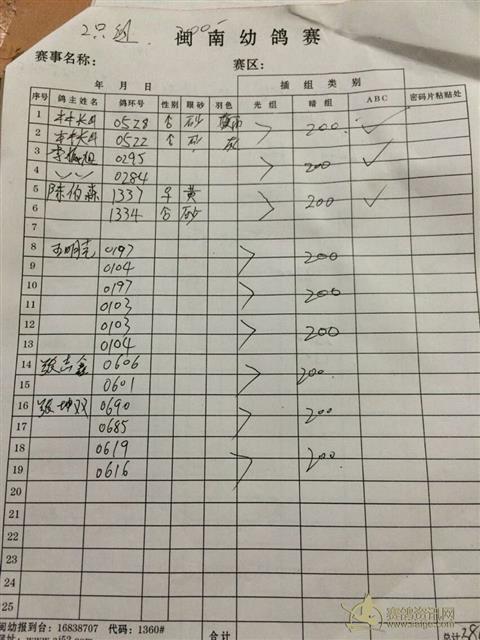 2只组 200
闽南幼鸽赛
赛事名称： 赛区：
年 月 日 插组类别
序号 鸽主姓名 鸽环号 性别 眼砂 羽色 光组 暗组 ABC 密码片粘贴处
1 0528 合 砂 200
2 0522 合 砂 灰
3 0295 200
4 0284
5 陈伯森 1337 平 黄 200
6 1334 合 砂
7
8 王明亮 0197 200
9 0104
10 0197 200
11 0103
12 0103 200
13 0104
14 张志鑫 0606 200
15 0601
16 张坤双 0690 200
17 0685
18 0619 200
19 0616
20
21
22
23
24
25 合计 总计28
闽幼报到台：16838707 代码：1360#
赛鸽资讯网
www.saige.com